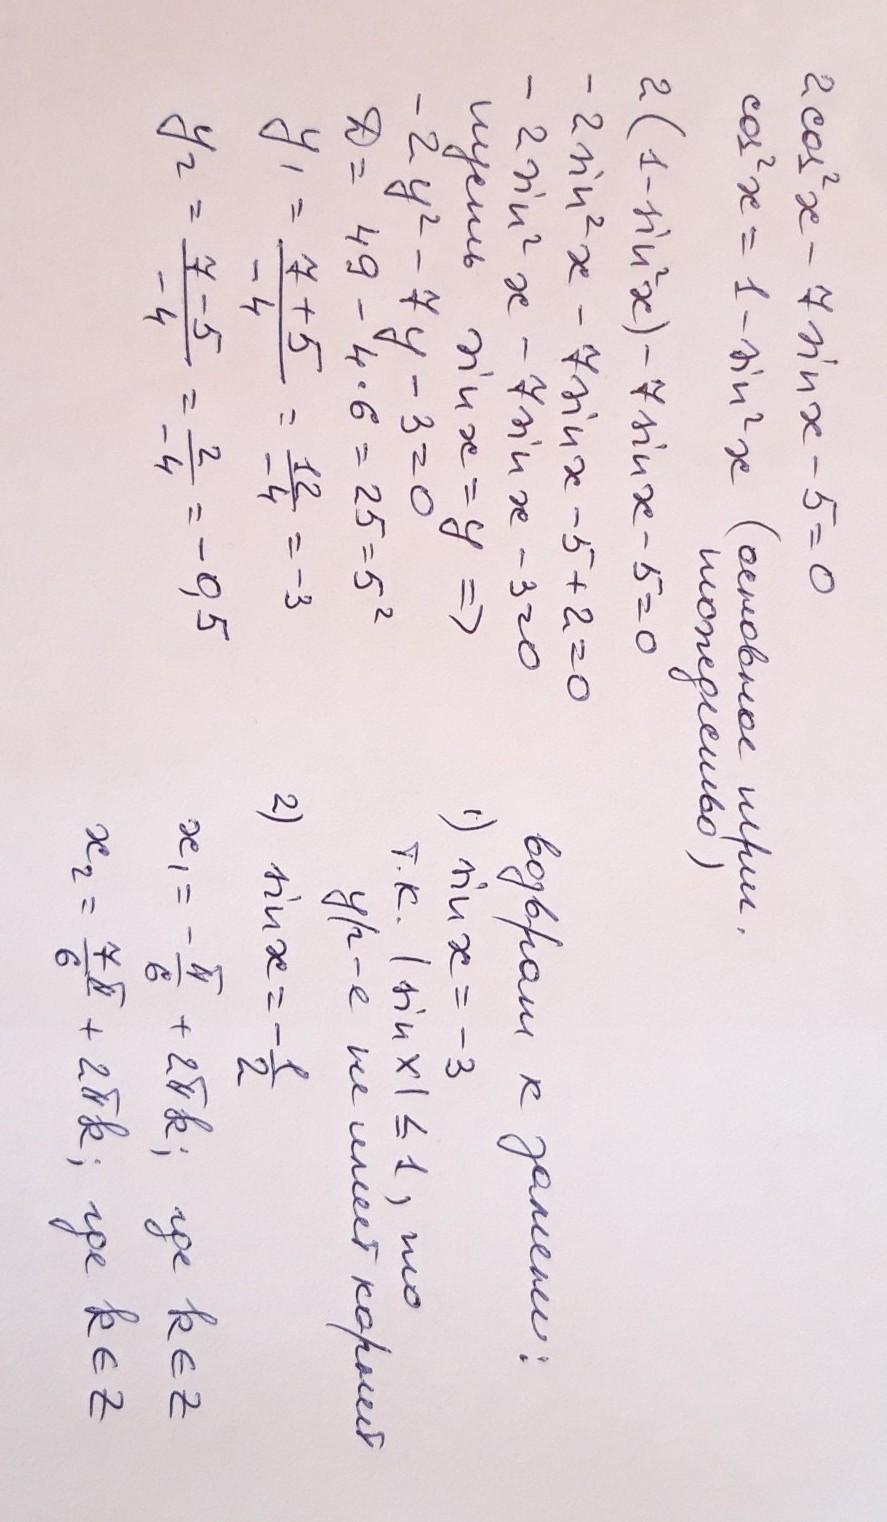 2cos²x - 7sinx - 5 = 0
cos²x = 1 - sin²x (основное триг.
тождество)
2(1 - sin²x) - 7sinx - 5 = 0
-2sin²x - 7sinx - 5 + 2 = 0
-2sin²x - 7sinx - 3 = 0
пусть sinx = y =>
-2y² - 7y - 3 = 0
D = 49 - 4·6 = 25 = 5²
y₁ = (7+5)/(-4) = 12/(-4) = -3
y₂ = (7-5)/(-4) = 2/(-4) = -0,5
возврат к замене:
1) sinx = -3
т.к. |sinx| ≤ 1, то
ур-е не имеет корней
2) sinx = -1/2
x₁ = -π/6 + 2πk; где k ∈ Z
x₂ = 7π/6 + 2πk; где k ∈ Z